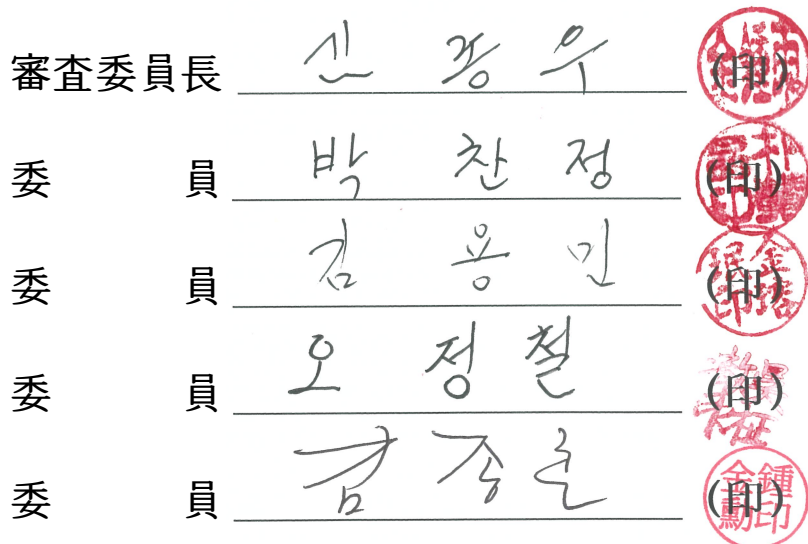 審査委員長 신 중 우 (印)
委 員 박 찬 정 (印)
委 員 김 용 민 (印)
委 員 오 정 철 (印)
委 員 김 종 훈 (印)
金鍾勳印